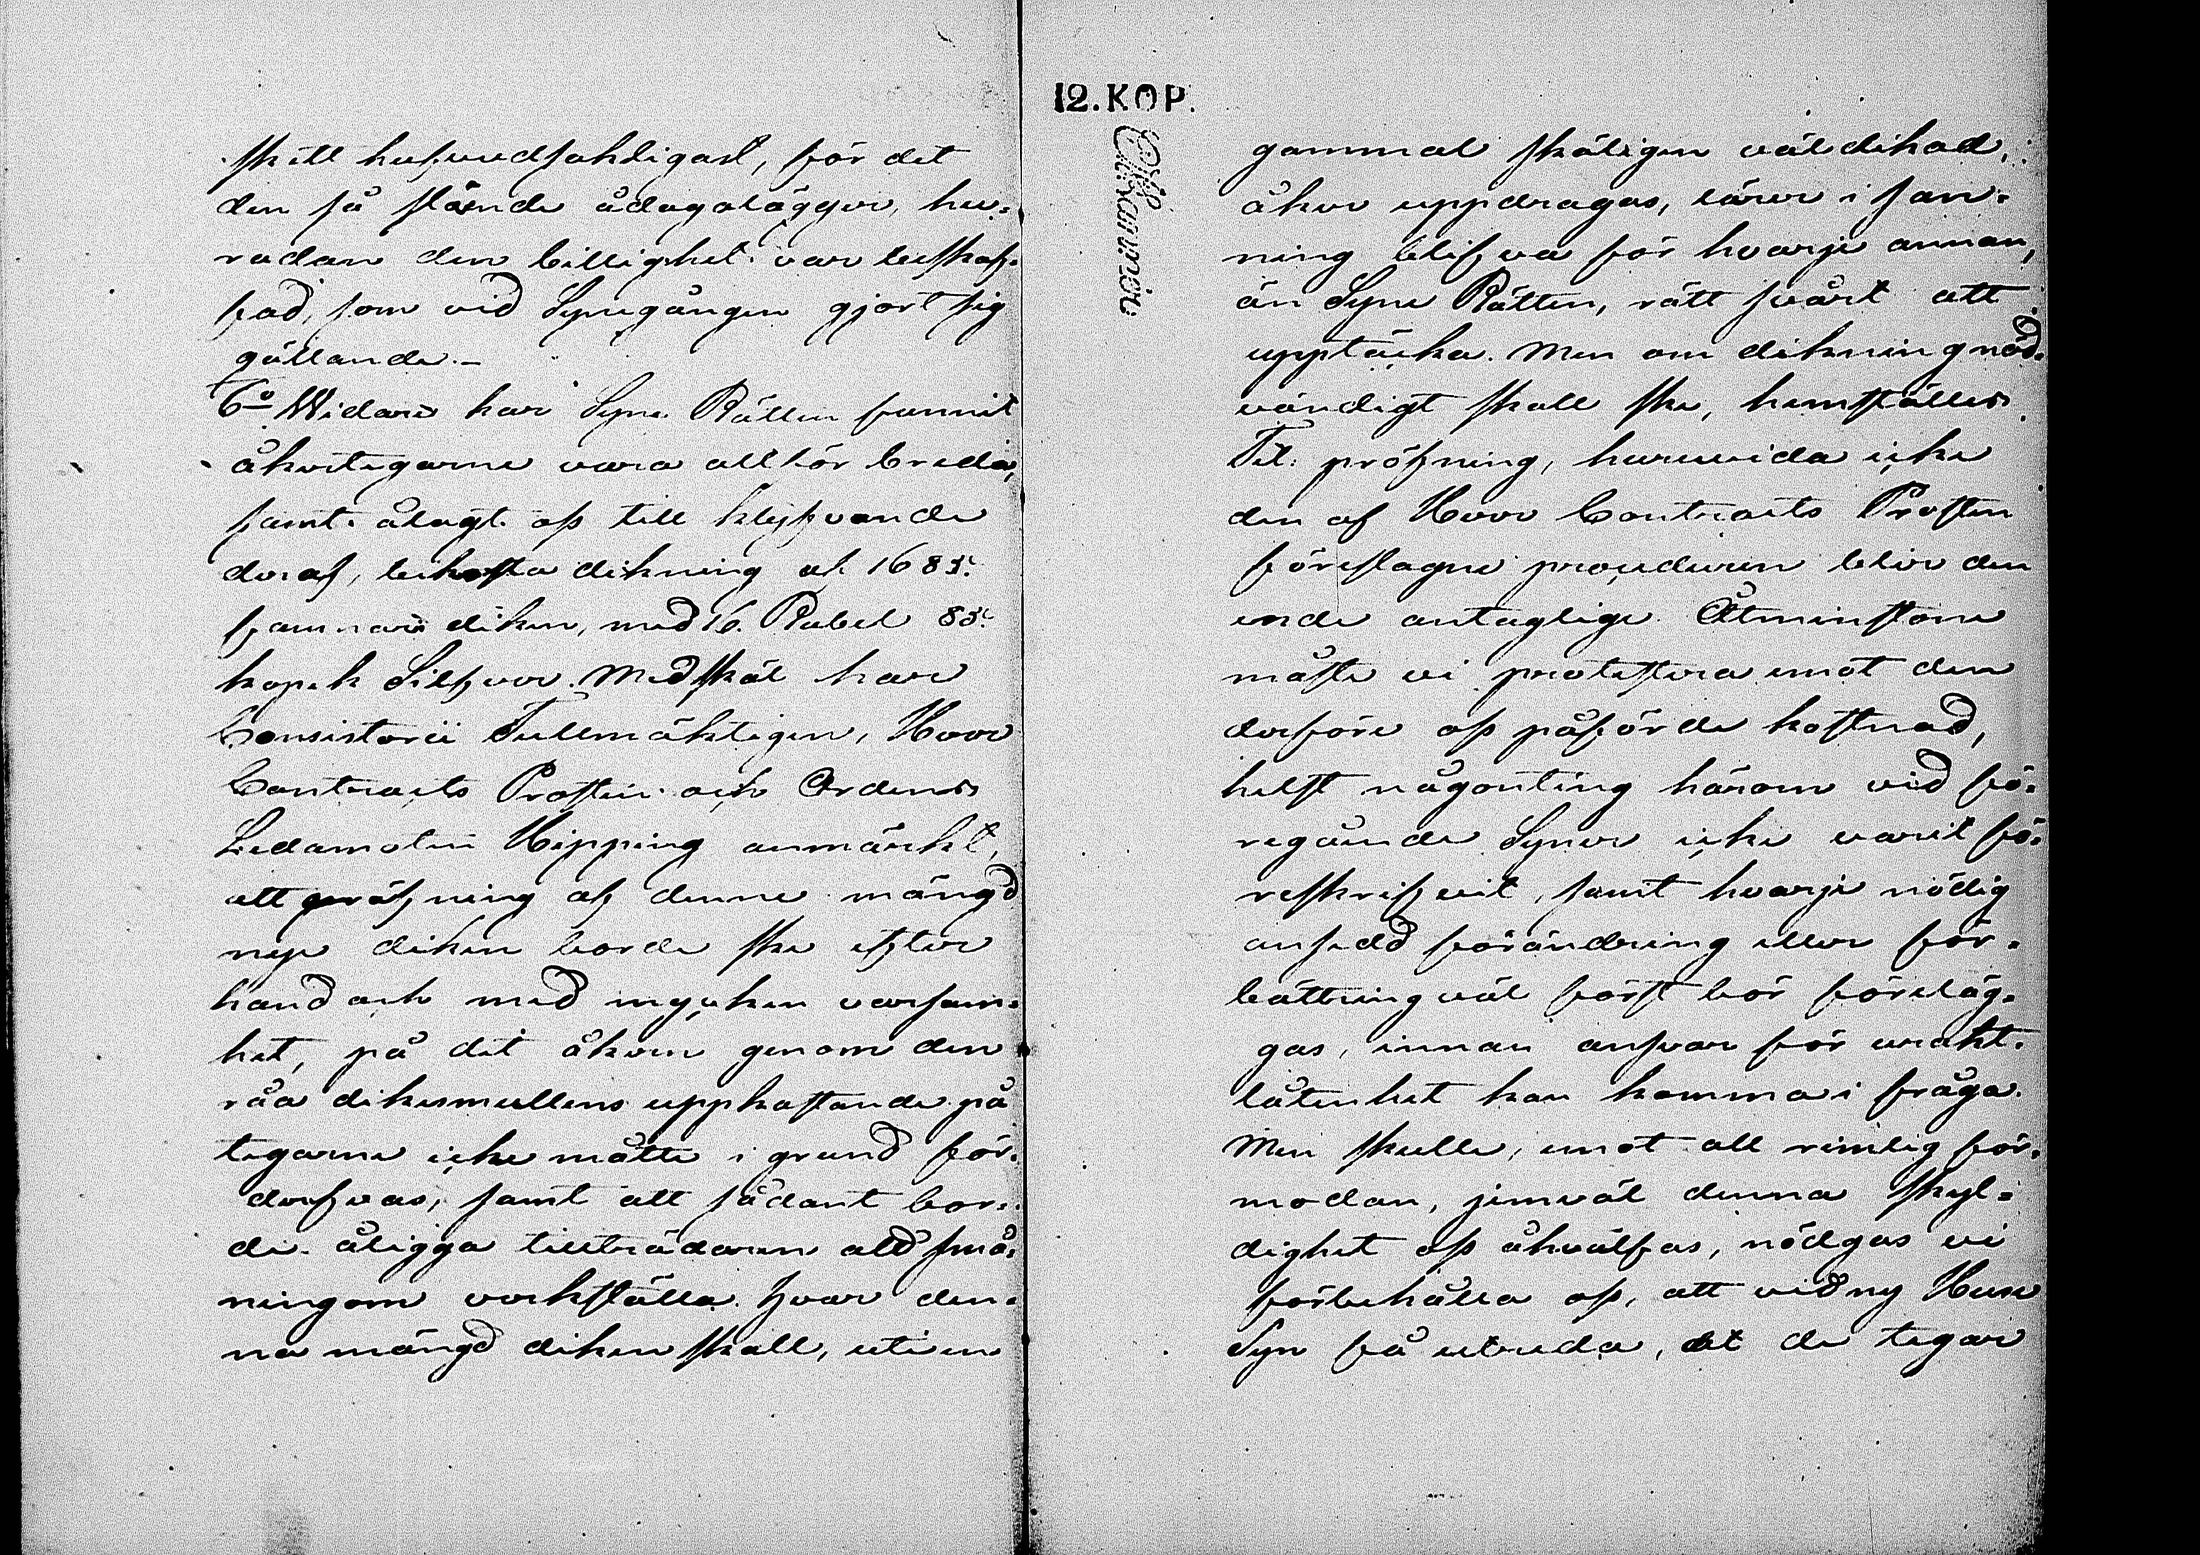 skill hufvudsakligast, för det
den så stående ådagalägger, hu-
rudan den billighet var beskaf-
fad, som vid Synegången gjort sig
gällande.-
6o Widare har Syne Rätten funnit
åkertegarne vara alltför breda,
samt ålagt oss till klyfvande
deraf, bekosta dikning af 1685.
famnar diken, med 16. Rubel 85.
kopek Silfver. Med skäl har
Consistorii Fullmäktigen, Herr
Contracts Prosten och Ordens
Ledamoten Hipping anmärkt,
att gräfning af denne mängd
nye diken borde ske efter
hand och med mycken varsam-
het, på det åkern genom den
råa dikesmullens uppkastande på
tegarne icke måtte i grund för-
derfvas, samt att sådant bor-
de åligga tillträdaren att små-
ningom verkställa. Hvar den-
na mängd diken skall, uti en
12. KOP.
gammal skäligen väl dikad
åker uppdragas, lärer i san-
ning blifva för hvarje annan,
än Syne Rätten, rätt svårt att
upptäcka. Men om dikning nöd-
vändigt skall ske, hemställes
Till pröfning, huruvida icke
den af Herr Contracts Prosten
föreslagne proceduren blir den
enda antaglige. Åtminstone
måste vi protestera emot den
derföre oss påförde kostnad,
helst någonting härom vid fö-
regående Syner icke varit fö-
reskrifvit, samt hvarje nödig
ansedd förändring eller för-
bättring väl först bör föreläg-
gas, innan ansvar för urakt-
låtenhet kan komma i fråga.
Men skulle, emot all rimlig för-
modan, jemväl denna skyl-
dighet oss åhvälfvas, nödgas vi
förbehålla oss, att vid ny Huse
Syn få utreda, at de tegar